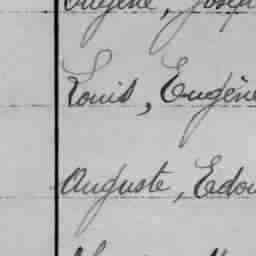 Eugène, Josep
Louis, Eugène
Auguste, Edou